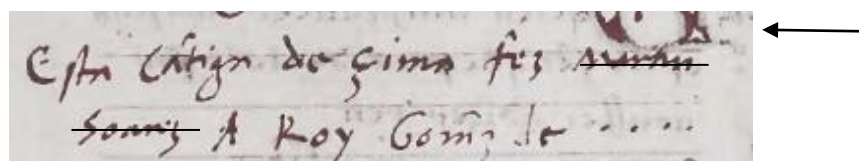 Esta Cãtiga de çima fez martin
Soarez A Roy Gom̃z de ....